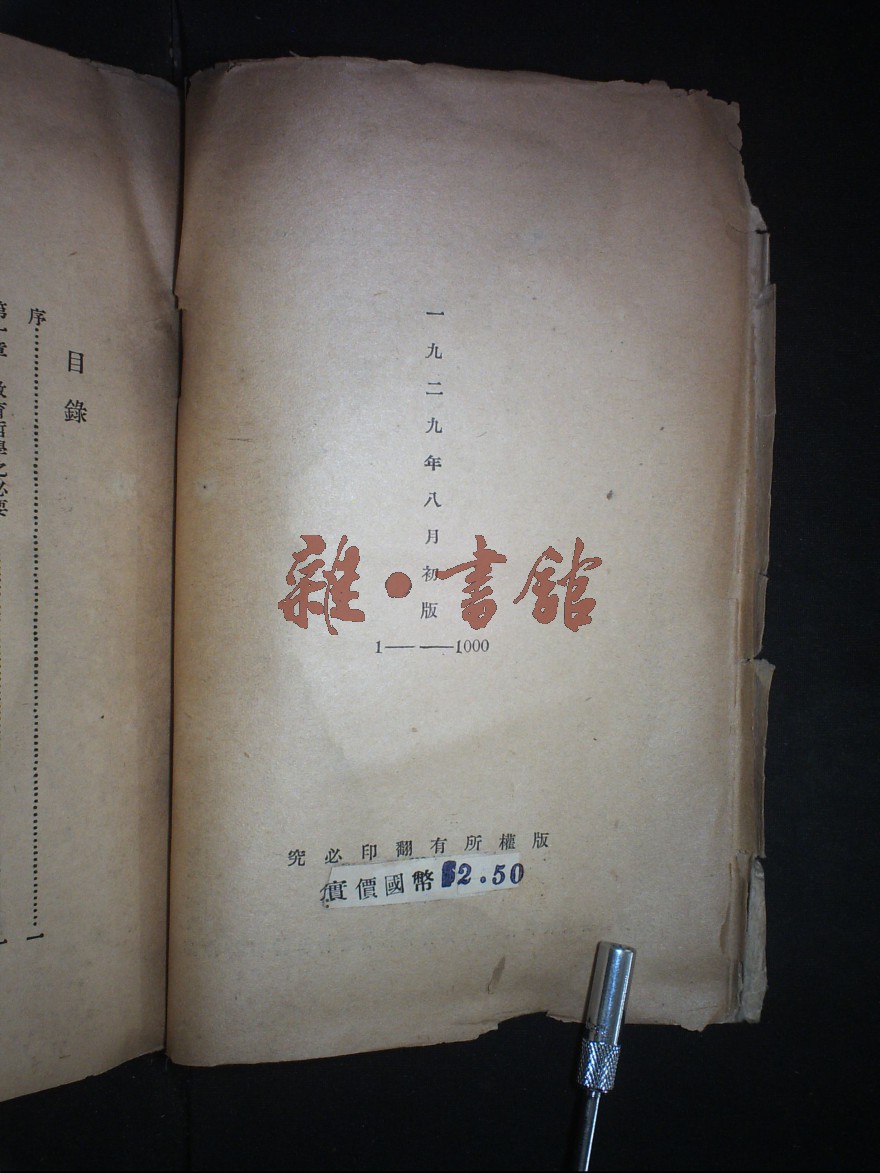 一九二九年八月初版
1——1000
版權所有翻印必究
實價國幣$2.50
雜·書館
目錄
序 一
第一章 教育哲學之必要 一